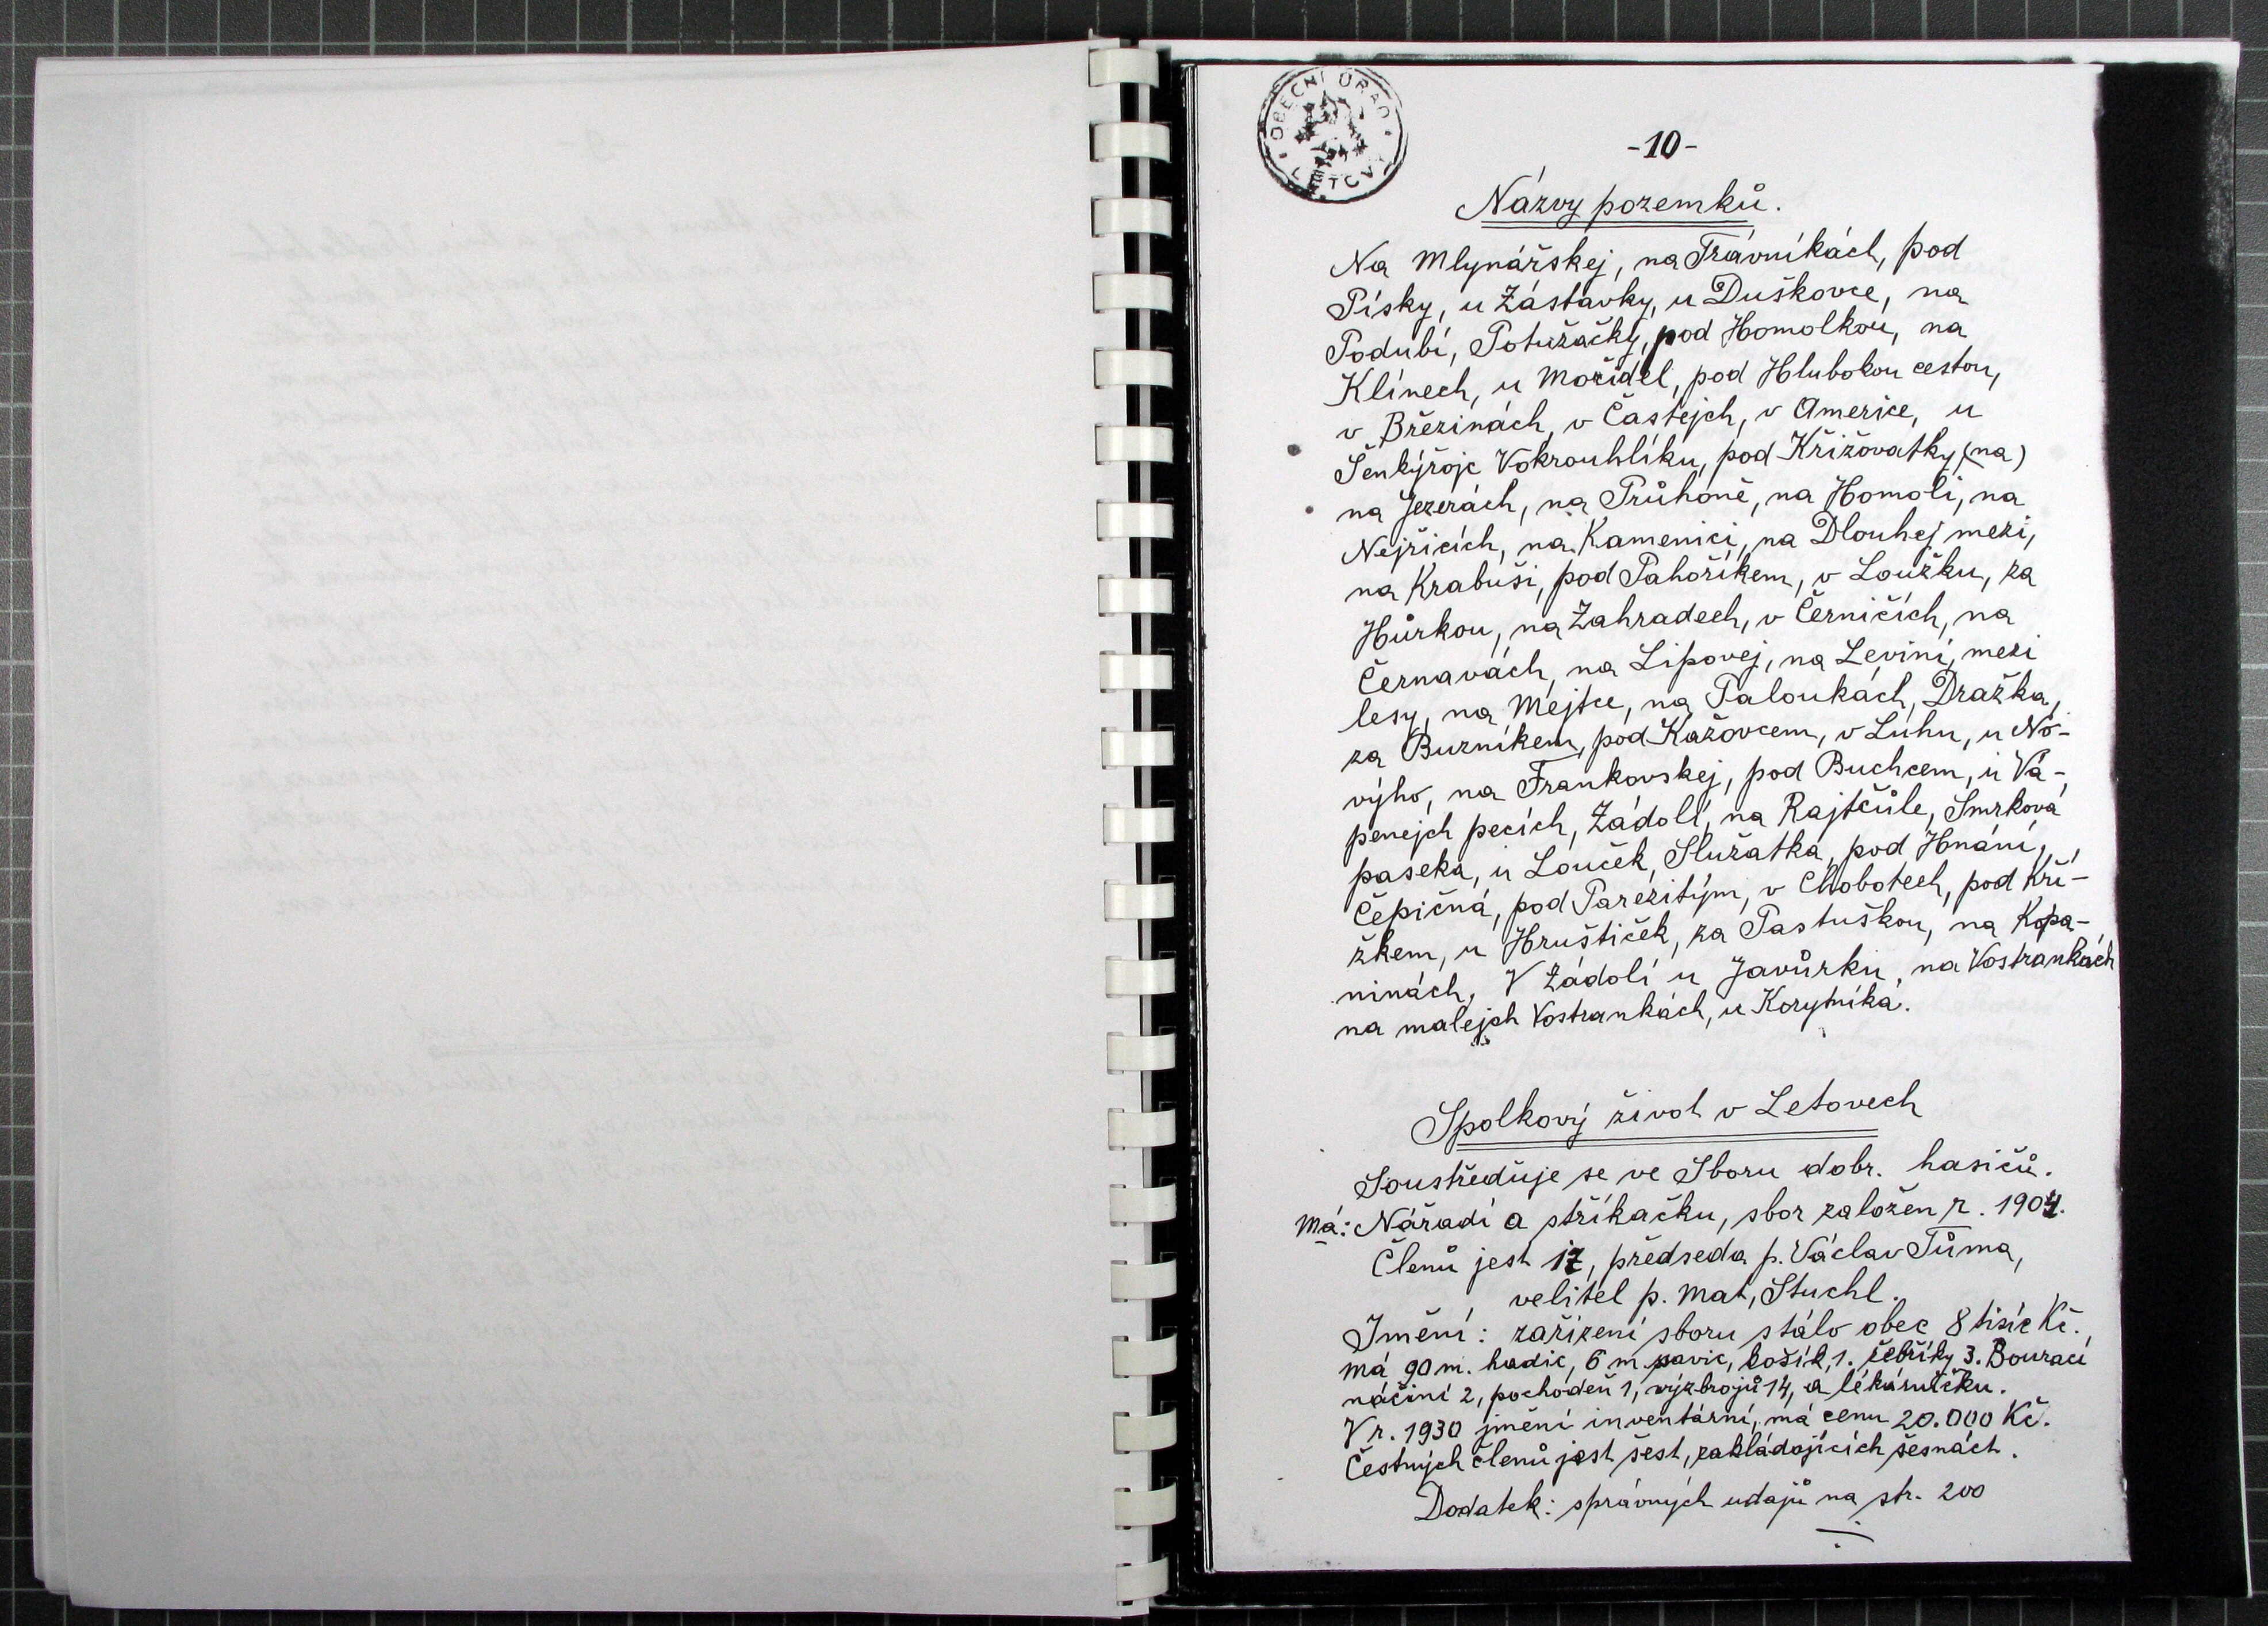 OBECNÍ ÚŘAD
LETOVY
-10-
Názvy pozemků.
Na Mlynářskej, na Trávníkách, pod
Písky, u Zástavky, u Duškovce, na
Podubí, Potužačky, pod Homolkou, na
Klínech, u Močidel, pod Hlubokou cestou,
v Březinách, v Častejch, v Americe, u
Šenkýřojc Vokrouhlíku, pod Křižovatky (na)
na Jezerách, na Průhoně, na Homoli, na
Nejřicích, na Kamenici, na Dlouhej mezi,
na Krabuši, pod Pahoříkem, v Loužku, za
Hůrkou, na Zahradech, v Černičích, na
Černavách, na Lipovej, na Levíní, mezi
lesy, na Mejtce, na Paloukách, Dražka,
za Buzníkem, pod Kažovcem, v Luhu, u No-
výho, na Frankovskej, pod Buchcem, u Vá-
penejch pecích, Zádolí, na Rajtčůle, Smrková
paseka, u Louček, Služatka, pod Hnání,
Čepičná, pod Pařezitým, v Chobotech, pod Kří-
žkem, u Hruštiček, za Pastuškou, na Kopa-
ninách, V Zádolí u Javůrku, na Vostrankách
na malejch Vostrankách, u Korytníka.
Spolkový život v Letovech
Soustřeďuje se ve Sboru dobr. hasičů.
Má: Nářadí a stříkačku, sbor založen r. 1904.
Členů jest 17, předseda p. Václav Tůma,
velitel p. Mat, Stuchl.
Jmění: zařízení sboru stálo obec 8 tisíc Kč.
má 90 m. hadic, 6 m. savic, košík 1. čebříky 3. Bourací
náčiní 2, pochodeň 1, výzbrojů 14, a lékárničku.
V r. 1930 jmění inventární, má cenu 20.000 Kč.
Čestných členů jest šest, zakládajících šesnáct.
Dodatek: správných udajů na str. 200